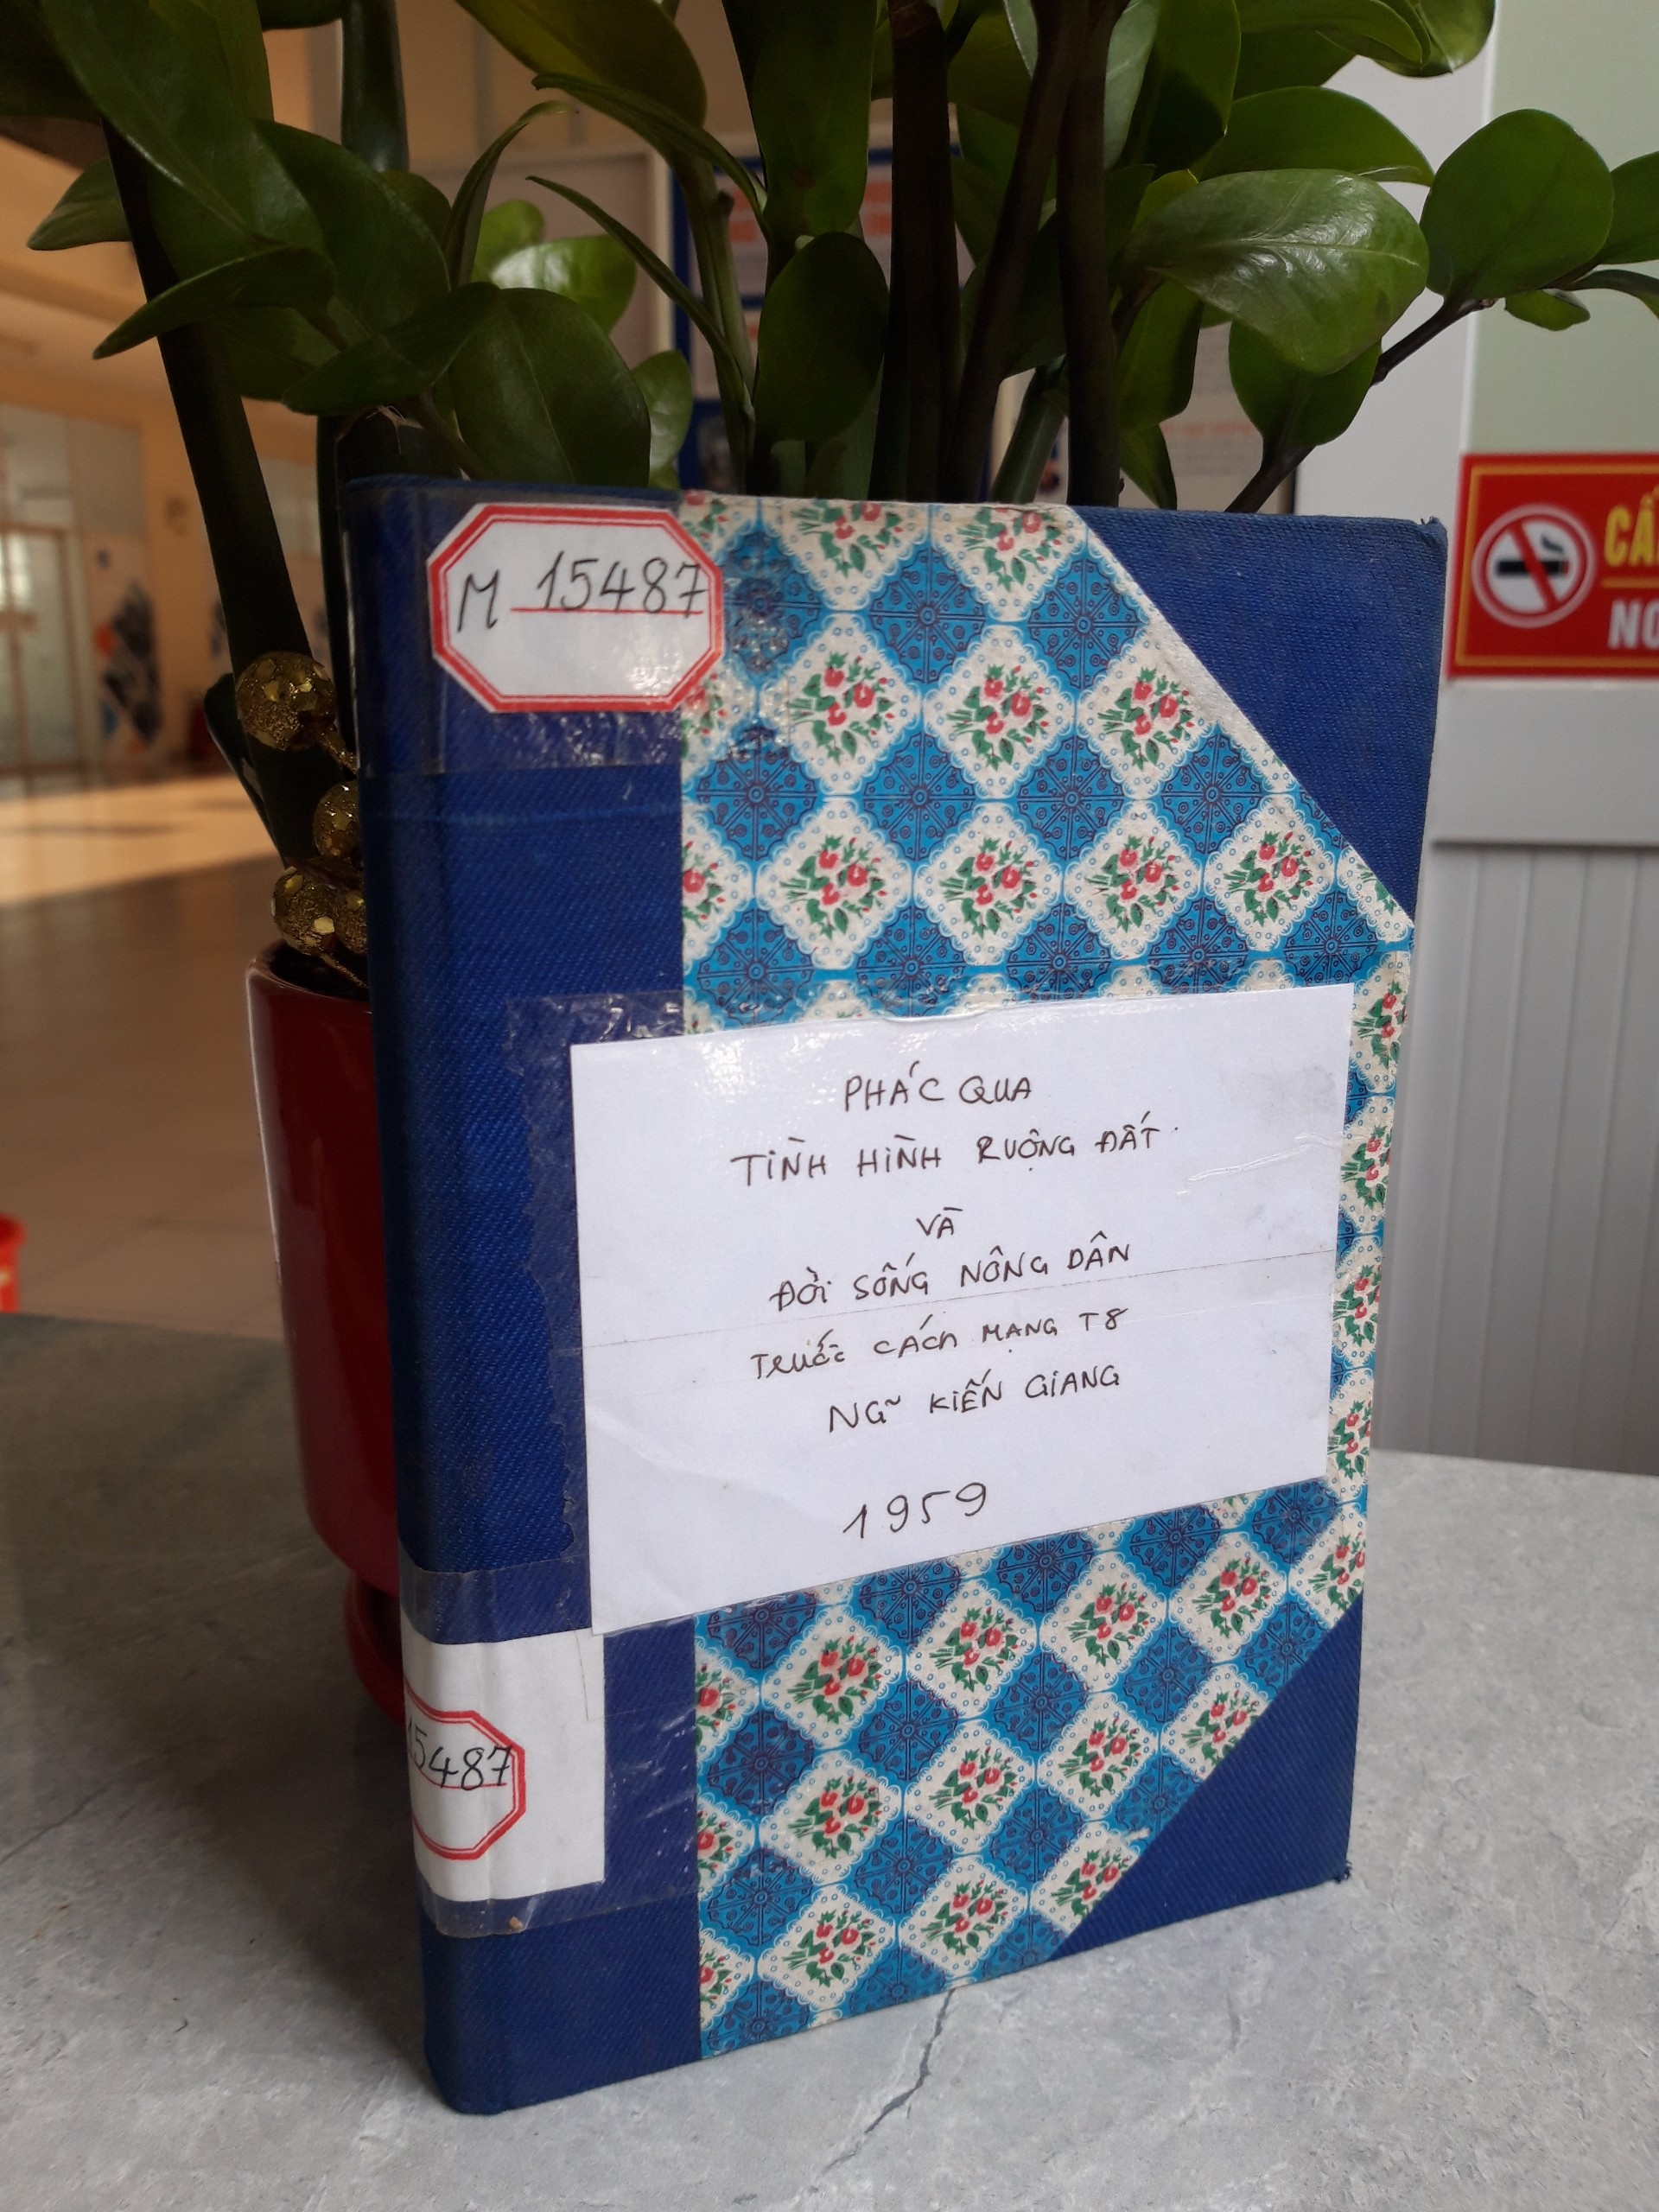 M 15487
PHÁC QUA
TÌNH HÌNH RUỘNG ĐẤT
VÀ
ĐỜI SỐNG NÔNG DÂN
TRƯỚC CÁCH MẠNG T8
NG~ KIẾN GIANG
1959
15487
CẤ
NO